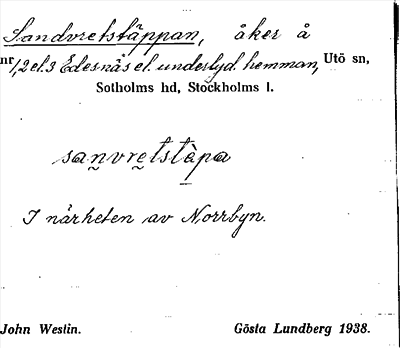 Sandvretstäppan, åker å
nr 1,2 el. 3 Edesnäs el. underlyd. hemman, Utö sn,
Sotholms hd, Stockholms l.
san̰vrḛtstàpa
I närheten av Norrbyn.
John Westin. Gösta Lundberg 1938.